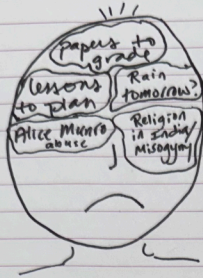 papers to
grade
lessons
to plan
Rain
tomorrow?
Alice Munro
abuse
Religion
in India
Misogyny